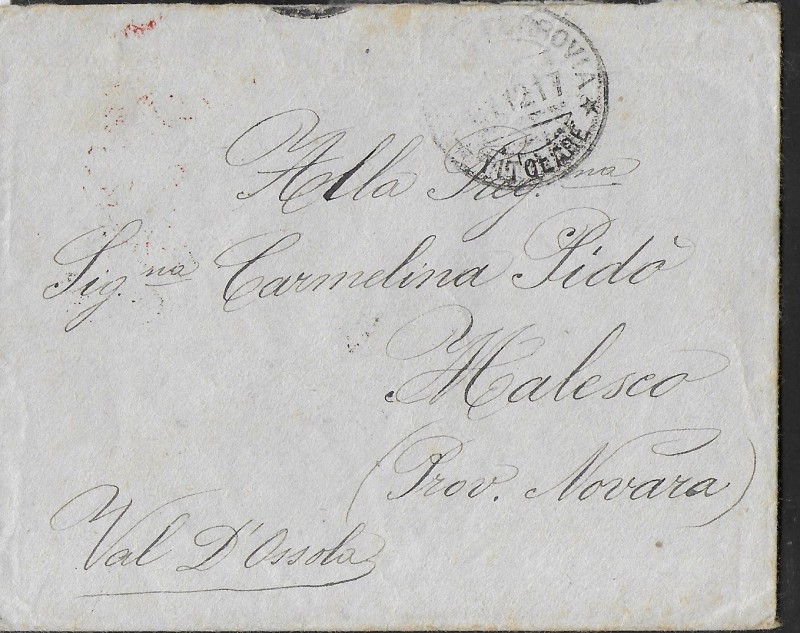 FERROVIA
12 17
Alla Sig.na
Sig.na Carmelina Pidò
Malesco
(Prov. Novara)
Val D'Ossola